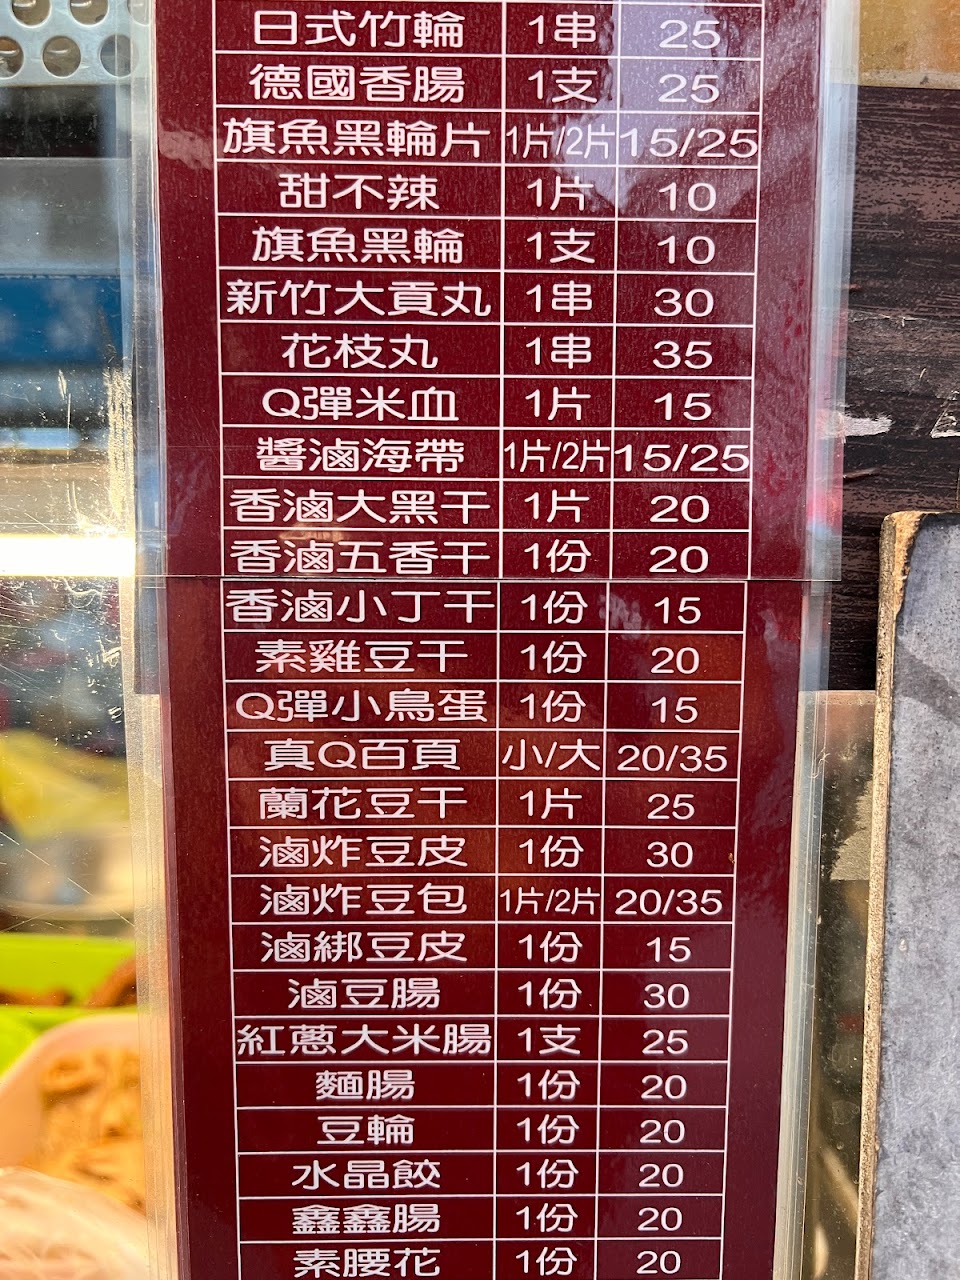 日式竹輪 1串 25
德國香腸 1支 25
旗魚黑輪片 1片/2片 15/25
甜不辣 1片 10
旗魚黑輪 1支 10
新竹大貢丸 1串 30
花枝丸 1串 35
Q彈米血 1片 15
醬滷海帶 1片/2片 15/25
香滷大黑干 1片 20
香滷五香干 1份 20
香滷小丁干 1份 15
素雞豆干 1份 20
Q彈小鳥蛋 1份 15
真Q百頁 小/大 20/35
蘭花豆干 1片 25
滷炸豆皮 1份 30
滷炸豆包 1片/2片 20/35
滷綁豆皮 1份 15
滷豆腸 1份 30
紅蔥大米腸 1支 25
麵腸 1份 20
豆輪 1份 20
水晶餃 1份 20
鑫鑫腸 1份 20
素腰花 1份 20